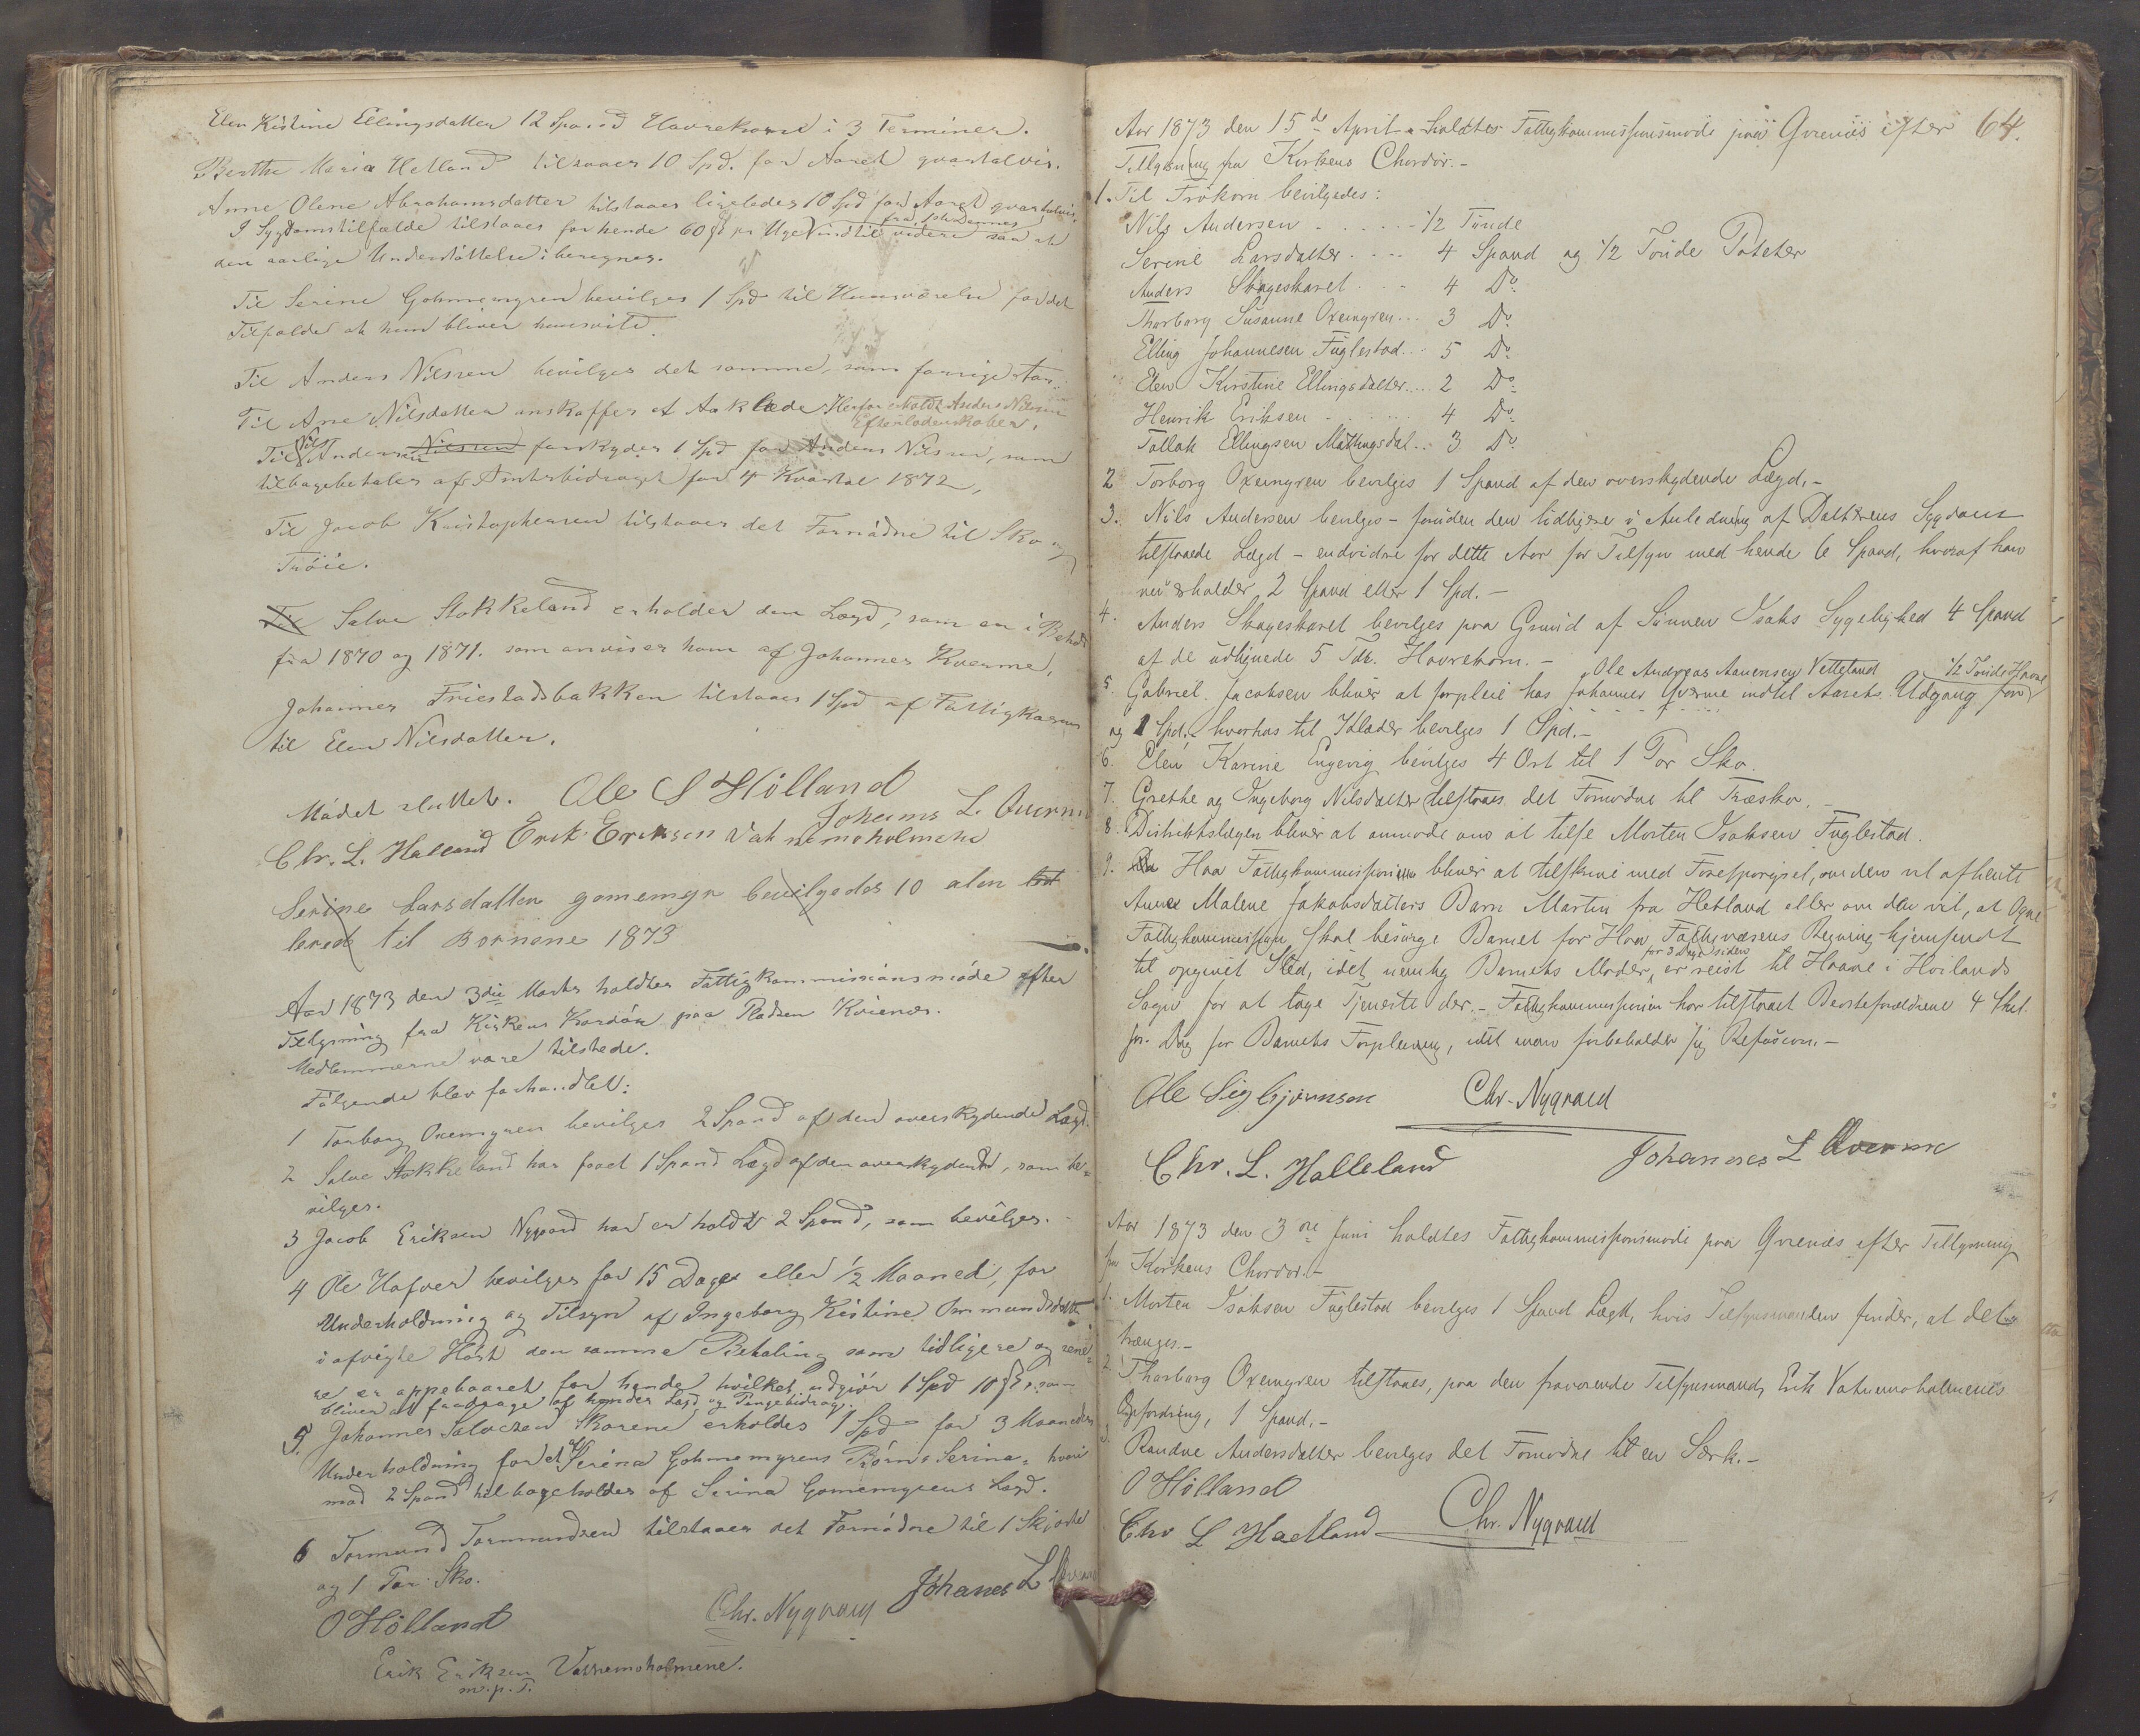 Elen Kistine Ellingsdatter 12 Spand Havrekorn i 3 Terminer.
Berthe Maria Hetland tilstaaes 10 Spd. for Aaret qvartalvis.
Anne Olene Abrahamsdatter tilstaaes ligeledes 10 Spd for Aaret qvartalvis.
I Sygdomstilfælde tilstaaes for hende 60 ß pr Uge indtil videre saa at
fra 1ste Dennes
den aarlige Understøttelse iberegnes.
Til Serine Gohmemyren bevilges 1 Spd til Huusværelse for det
Tilfælde at hun bliver huusvild.
Til Anders Nilssen bevilges det samme, som forrige Aar.
Til Ane Nilsdatter anskaffes et Aaklæde Anders Nilsen
Efterladenskaber.
Til Nils Andersen Nilssen forskydes 1 Spd for Anders Nilsen, som
tilbagebetales af Amtsbidraget for 4 Kvartal 1872.
Til Jacob Kristophersen tilstaaes det Fornødne til Sko og
Trøie.
Til Salve Stokkeland erholder den Lægd, som en i Behold
fra 1870 og 1871. som anvises ham af Johannes Kverme.
Johannes Friestadsbakken tilstaaes 1 Spd af Fattigkassen
til Elen Nilsdatter.
Mødet sluttet. Ole S Hölland
Johanns L. Qverme
Chr. L. Halland Erik Eriksen Vatnemoholmene
Serine Larsdatter gomemyr bevilgedes 10 alen
lered til Bornene 1873
Aar 1873 den 3die Marts holdtes Fattigkommissionsmøde efter
Tillysning fra Kirkens Kordør paa Pladsen Kvienes.
Medlemmerne vare tilstede.
Følgende blev forhandlet:
1 Torborg Oxemyren bevilges 2 Spand af den overskydende Lægd.
2 Salve Stokkeland har faaet 1 Spand Lægd af den overskydende, som be-
vilges.
3 Jacob Eriksen Nygaard har erholdt 2 Spand, som bevilges.
4 Ole Hafver bevilges for 15 Dage eller 1/2 Maaned, for
Underholdning og Tilsyn af Ingeborg Kistine Ommundsdatter
i afvigte Høst den samme Betaling som tidligere og sene-
re er oppebaaret for hende hvilket udgjør 1 Spd 10 ß, som
bliver at fradrage af hendes Lægd og Pengebidrag.
5. Johannes Salvesen Skarene erholdes 1 Spd for 3 Maaneders
Underholdning for et af Serina Gohmemyrens Børn: Serina, hvori
mod 2 Spand tilbageholdes af Serina Gomemyrens Lægd.
6 Tormund Tormundsen tilstaaes det Fornødne til 1 Skjorte
og 1 Par Sko.
O Hölland Chr. Nygaard Johanes L Qverme
Erik Eriksen Vatnemoholmene.
m.p.T.
64.
Aar 1873 den 15de April holdtes Fattigkommissionsmøde paa Qvenæs efter
Tillysning fra Kirkens Chordør.-
1. Til Frøkorn bevilgedes:
Nils Andersen . . . . . . 1/2 Tønde
Serine Larsdatter . . . . 4 Spand og 1/2 Tønde Poteter
Anders Skageskaret . . . 4 Do
Thorborg Susanne Oxemyren . . . 3 Do
Elling Johannesen Fuglestad . . 5 Do
Elen Kirstine Ellingsdatter . . . . 2 Do
Henrik Eriksen . . . . . . 4 Do
Tallak Ellingsen Mattingsdal . . 3 Do
2 Torborg Oxemyren bevilges 1 Spand af den overskydende Lægd.-
3. Nils Andersen bevilges - foruden den tidligere i Anledning af Datterens Sygdom
tilstaaede Lægd - endvidre for dette Aar for Tilsyn med hende 6 Spand, hvoraf han
nu erholder 2 Spand eller 1 Spd.-
4. Anders Skageskaret bevilges paa Grund af Sønnen Isaks Sygelighed 4 Spand
af de udlignede 5 Tdr. Havrekorn.-
Ole Andreas Aanensen Vetteland 1/2 Tønde Havre
5. Gabriel Jacobsen bliver at forpleie hos Johannes Qverme indtil Aarets Udgang for
og 1 Spd. hvorhos til Klæder bevilges 1 Spd.-
6. Elen Karine Engevig bevilges 4 Ort til 1 Par Sko.
7. Grethe og Ingeborg Nilsdatter tilstaaes det Fornødne til Træsko.-
8. Distriktslægen bliver at anmode om at tilse Morten Isaksen Fuglestad.
9. Haa Fattigkommission bliver at tilskrive med Forespørgsel, om den vil afhente
Anne Malene Jakobsdatters Barn Martin fra Hetland eller om den vil, at Ogne
Fattigkommission skal besørge Barnet for Haa Fattigvæsens Regning hjemsendt
for 3 Dage siden
til opgivet Sted, idet nemlig Barnets Moder, er reist til Haave i Høilands
Sogn for at tage Tjeneste der.- Fattigkommissionen har tilstaaet Bedsteforældrene 4 Skil.
pr. Dag for Barnets Forpleining, idet man forbeholder sig Refusion.-
Ole Sigbjørnsen Chr. Nygaard
Chr. L. Halleland Johannes L Qverme
Aar 1873 den 3die Juni holdtes Fattigkommissionsmøde paa Qvenæs efter Tillysning
fra Kirkens Chordør.-
1. Morten Isaksen Fuglestad bevilges 1 Spand Lægd, hvis Tilsynsmanden finder, at det
trænges.-
2. Thorborg Oxemyren tilstaaes, paa den fraværende Tilsynsmand, Erik Vatnemoholmenes
Opfordring, 1 Spand.-
3 Randve Andersdatter bevilges det Fornødne til en Særk.-
O Hölland
Chr L Haelland Chr. Nygaard